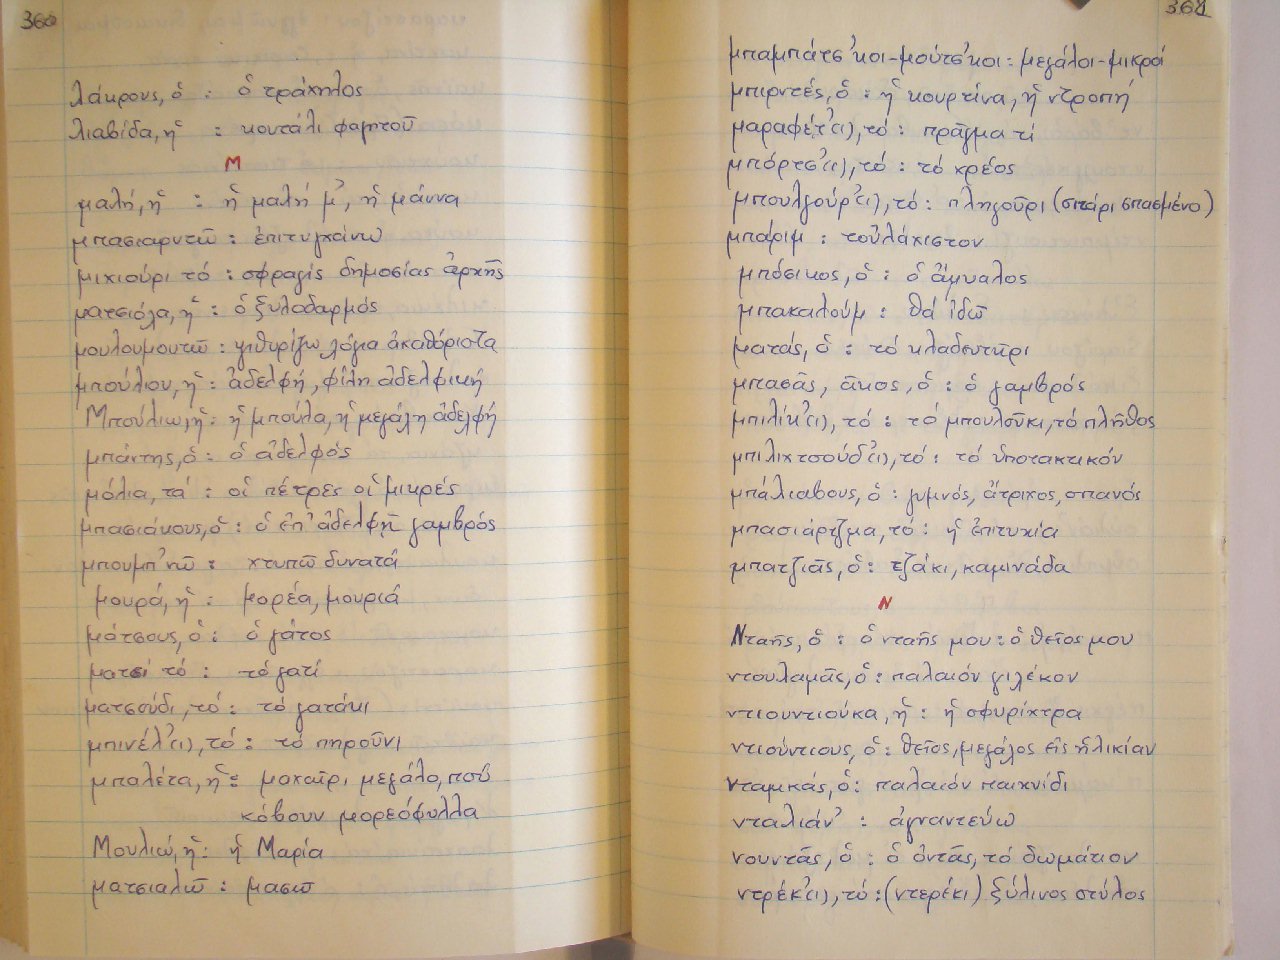 360
λάκρους, ὁ : ὁ τράχηλος
λιαβίδα, ἡ : κουτάλι φαγητοῦ
Μ
μαλή, ἡ : ἡ μαλή μ', ἡ μάννα
μπασιαρντῶ : ἐπιτυγχάνω
μιχιούρι τό : σφραγίς δημοσίας ἀρχῆς
ματσιόλα, ἡ : ὁ ξυλοδαρμός
μουλουμουτῶ : ψιθυρίζω λόγια ἀκαθόριστα
μπούλιου, ἡ : ἀδελφή, φίλη ἀδελφική
Μπούλιω, ἡ : ἡ μπούλα, ἡ μεγάλη ἀδελφή
μπάντης, ὁ : ὁ ἀδελφός
μόλια, τά : οἱ πέτρες οἱ μικρές
μπασιάκους, ὁ : ὁ ἐπ' ἀδελφῇ γαμβρός
μπουμπ'νῶ : χτυπῶ δυνατά
μουρά, ἡ : μορέα, μουριά
μάτσους, ὁ : ὁ γάτος
ματσί τό : τό γατί
ματσούδι, τό : τό γατάκι
μπινέλ'(ι), τό : τό πηροῦνι
μπαλέτα, ἡ : μαχαῖρι μεγάλο, πού
κόβουν μορεόφυλλα
Μουλιώ, ἡ : ἡ Μαρία
ματσιαλῶ : μασῶ
361
μπαμπάτσ'κοι-μούτσ'κοι : μεγάλοι-μικροί
μπιρντές, ὁ : ἡ κουρτίνα, ἡ ντροπή
μαραφέτ'(ι), τό : πρᾶγμα τί
μπόρτσ'(ι), τό : τό χρέος
μπουλγούρ'(ι), τό : πληγοῦρι (σιτάρι σπασμένο)
μπάριμ : τοὐλάχιστον
μπόσικος, ὁ : ὁ ἄμυαλος
μπακαλούμ : θά ἰδῶ
ματάς, ὁ : τό κλαδευτῆρι
μπασᾶς, ᾶκος, ὁ : ὁ γαμβρός
μπιλίκ'(ι), τό : τό μπουλοῦκι, τό πλῆθος
μπιλιχτσούδ'(ι), τό : τό ὑποτακτικόν
μπάλιαβους, ὁ : γυμνός, ἄτριχος, σπανός
μπασιάρτζμα, τό : ἡ ἐπιτυχία
μπατζιᾶς, ὁ : τζάκι, καμινάδα
Ν
Νταῆς, ὁ : ὁ νταῆς μου : ὁ θεῖος μου
ντουλαμᾶς, ὁ : παλαιόν γιλέκον
ντιουντιούκα, ἡ : ἡ σφυρίχτρα
ντιούντιους, ὁ : θεῖος, μεγάλος εἰς ἡλικίαν
νταμκάς, ὁ : παλαιόν παιχνίδι
νταλιάν' : ἀγναντεύω
νουντᾶς, ὁ : ὁ ὀντᾶς, τό δωμάτιον
ντρέκ'(ι), τό : (ντερέκι) ξύλινος στύλος